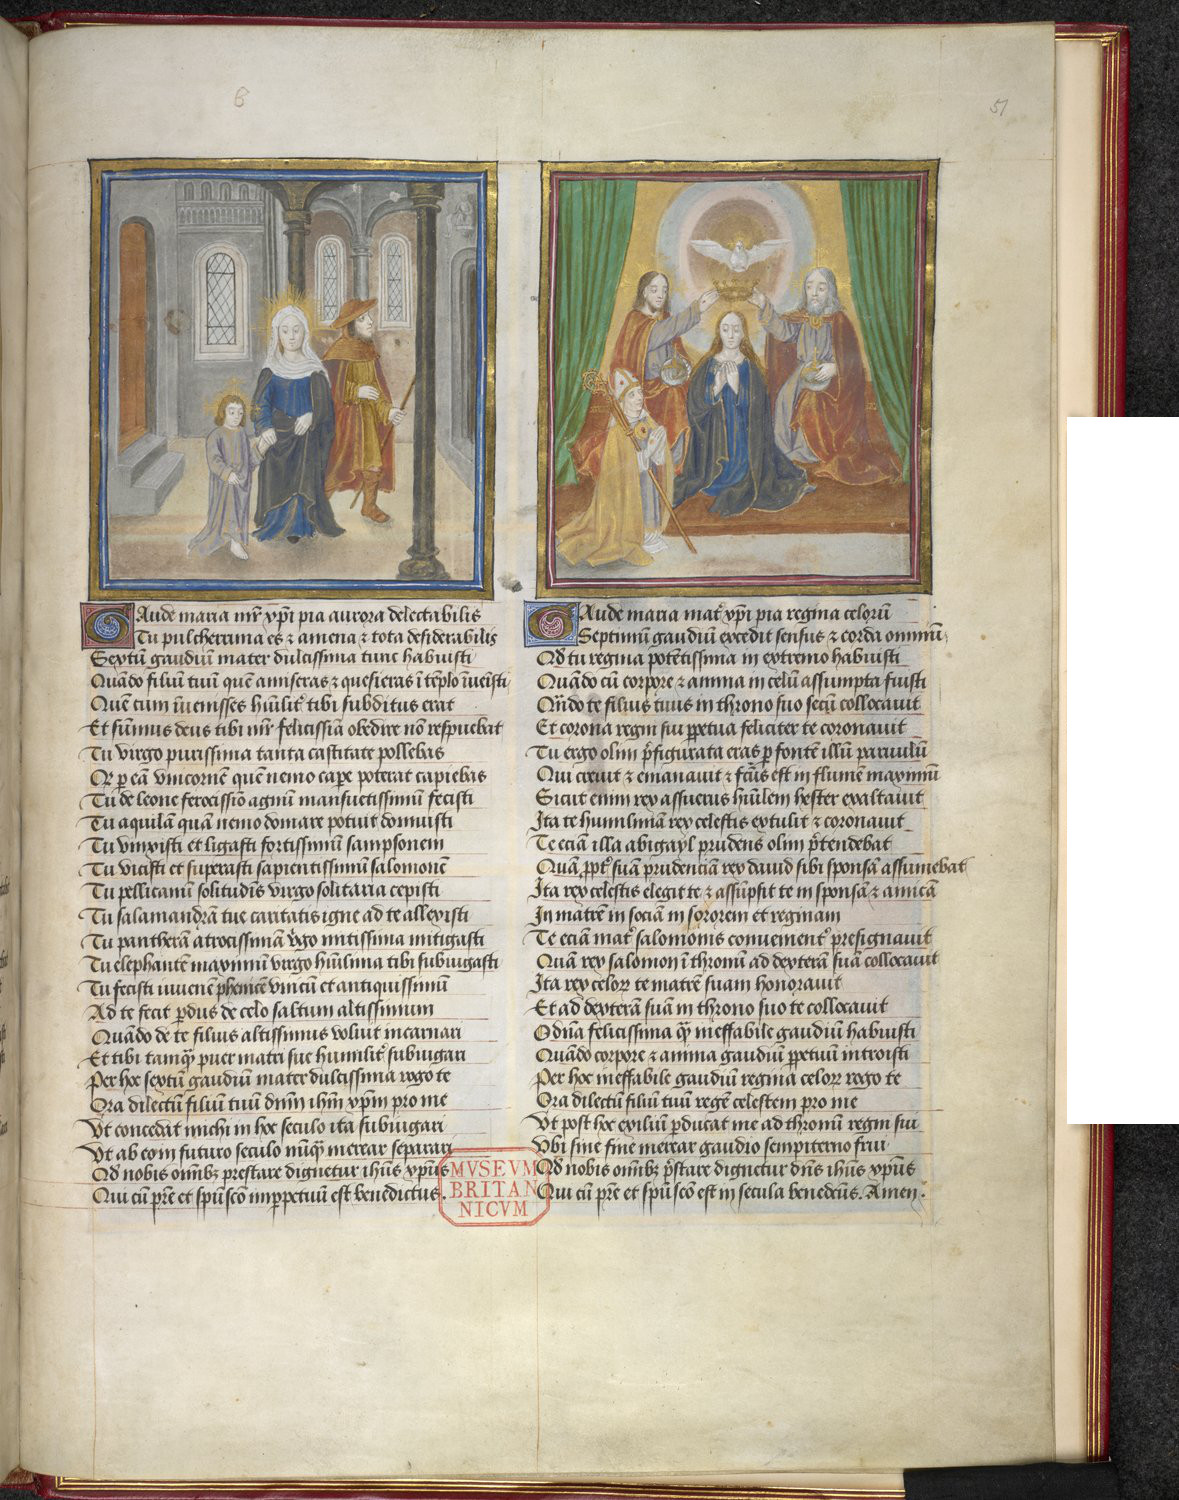 6
51
Gaude maria mr̄ xp̄i pia aurora delectabilis
Tu pulcherrima es ⁊ amena ⁊ tota desiderabilis
Sextū gaudiū mater dulcissima tunc habuisti
Quādo filiū tuū quē amiseras ⁊ quesieras ī tēplo īueīsti
Quē cum īuenisses hūilit᷑ tibi subditus erat
Et sūmus deus tibi mr̄i felicissīa obedire nō respuebat
Tu virgo purissima tanta castitate pollebas
Qr̄ ꝑ eā vnicornē quē nemo cape poterat capiebas
Tu de leone ferocissīo agnū mansuetissimū fecisti
Tu aquilā quā nemo domare potuit domuisti
Tu vinxisti et ligasti fortissimū sampsonem
Tu vicisti et superasti sapientissimū salomonē
Tu pellicanū solitudīs virgo solitaria cepisti
Tu salamandrā tue caritatis igne ad te allexisti
Tu pantherā atrocissimā v̉go mitissima mitigasti
Tu elephantē maximū virgo hūilima tibi subiugasti
Tu fecisti iuuenē phenicē vnicū et antiquissimū
Ad te fecit ꝑdus de celo saltum altissimum
Quādo de te filius altissimus voluit incarnari
Et tibi tamꝙ̄ puer matri sue humilit᷑ subiugari
Per hoc sextū gaudiū mater dulcissima rogo te
Ora dilectū filiū tuū dnm̄ ihm̄ xpm̄ pro me
Vt concedat michi in hoc seculo ita subiugari
Vt ab eo in futuro seculo nūꝙ̄ merear separari
Qd nobis om̄ibꝫ prestare dignetur ihūs xp̄us
Qui cū pr̄e et sp̄u scō imꝑpetuū est benedictus.
Gaude maria mat᷑ xp̄i pia regina celorū
Septimū gaudiū excedit sensus ⁊ corda omniū
Qd tu regina potētissima in extremo habuisti
Quādo cū corpore ⁊ anima in celū assumpta fuisti
Qn̄do te filius tuus in throno suo secū collocauit
Et corona regni sui ꝑpetua feliciter te coronauit
Tu ergo olim p̄figurata eras ꝑ fontē illū paruulū
Qui creuit ⁊ emanauit ⁊ fc̄us est in flumē maximū
Sicut enim rex assuerus hūilem hester exaltauit
Ita te humilimā rex celestis extulit ⁊ coronauit
Te eciā illa abigayl prudens olim p̄tendebat
Quā ꝓpt᷑ suā prudenciā rex dauid sibi sponsā assumebat
Ita rex celestis elegit te ⁊ assūpsit te in sponsā ⁊ amicā
In matrē in sociā in sororem et reginam
Te eciā mat᷑ salomonis conuenient᷑ presignauit
Quā rex salomon ī thronū ad dexterā suā collocauit
Ita rex celoꝝ te matrē suam honorauit
Et ad dexterā suā in throno suo te collocauit
O dn̄a felicissima ꝙ̄ ineffabile gaudiū habuisti
Quādo corpore ⁊ anima gaudiū ꝑpetuū introisti
Per hoc ineffabile gaudiū regina celoꝝ rogo te
Ora dilectū filiū tuū regē celestem pro me
Vt post hoc exiliū ꝑducat me ad thronū regni sui
Vbi sine fine merear gaudio sempiterno frui
Qd nobis om̄ibꝫ p̄stare dignetur dn̄s ihūs xpūs
Qui cū pr̄e et sp̄u scō est in secula bened̄cūs. Amen.
MVSEVM
BRITAN
NICVM